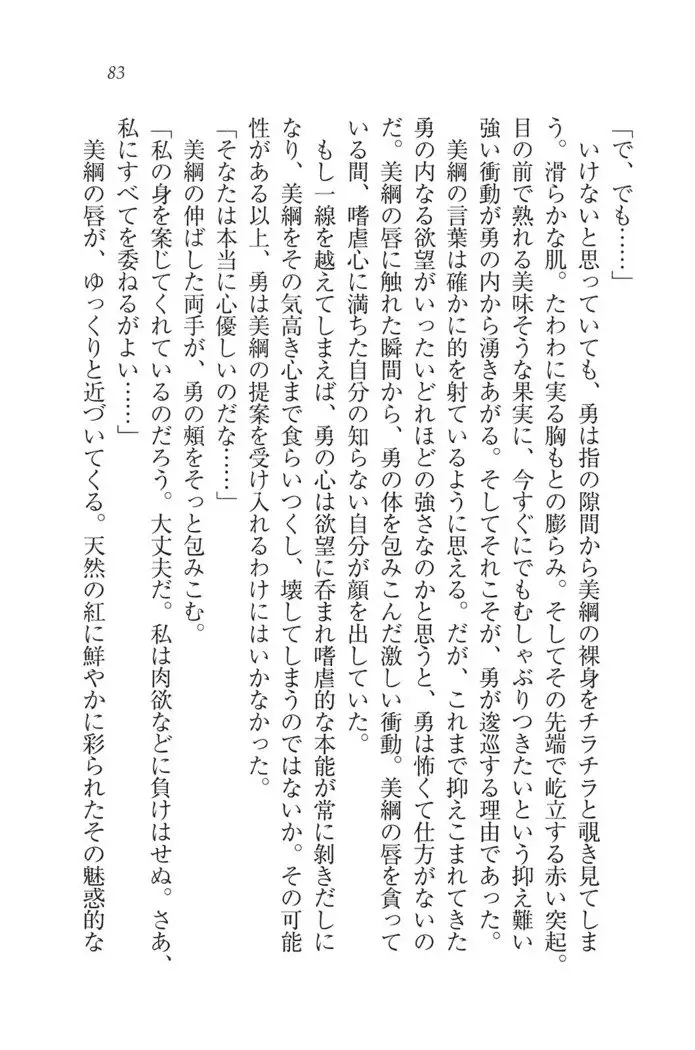 83
「で、でも……」
　いけないと思っていても、勇は指の隙間から美綱の裸身をチラチラと覗き見てしま
う。滑らかな肌。たわわに実る胸もとの膨らみ。そしてその先端で屹立する赤い突起。
目の前で熟れる美味そうな果実に、今すぐにでもむしゃぶりつきたいという抑え難い
強い衝動が勇の内から湧きあがる。そしてそれこそが、勇が逡巡する理由であった。
　美綱の言葉は確かに的を射ているように思える。だが、これまで抑えこまれてきた
勇の内なる欲望がいったいどれほどの強さなのかと思うと、勇は怖くて仕方がないの
だ。美綱の唇に触れた瞬間から、勇の体を包みこんだ激しい衝動。美綱の唇を貪って
いる間、嗜虐心に満ちた自分の知らない自分が顔を出していた。
　もし一線を越えてしまえば、勇の心は欲望に呑まれ嗜虐的な本能が常に剝きだしに
なり、美綱をその気高き心まで食らいつくし、壊してしまうのではないか。その可能
性がある以上、勇は美綱の提案を受け入れるわけにはいかなかった。
「そなたは本当に心優しいのだな……」
　美綱の伸ばした両手が、勇の頰をそっと包みこむ。
「私の身を案じてくれているのだろう。大丈夫だ。私は肉欲などに負けはせぬ。さあ、
私にすべてを委ねるがよい……」
　美綱の唇が、ゆっくりと近づいてくる。天然の紅に鮮やかに彩られたその魅惑的な